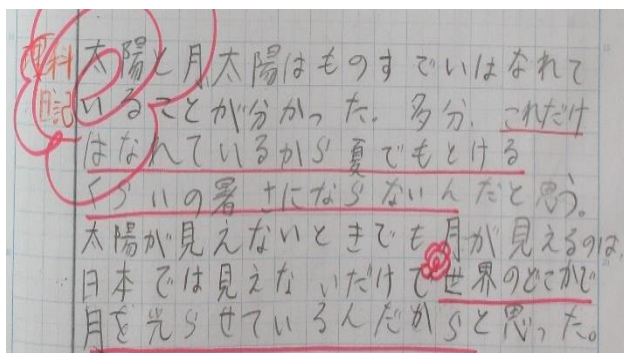 理科日記
太陽と月太陽はものすでいはなれて
いることが分かった。多分、これだけ
はなれているから夏でもとける
くらいの暑さにならないんだと思う。
太陽が見えないときでも月が見えるのは、
日本では見えないだけで世界のどこかで
月を光らせているんだからと思った。